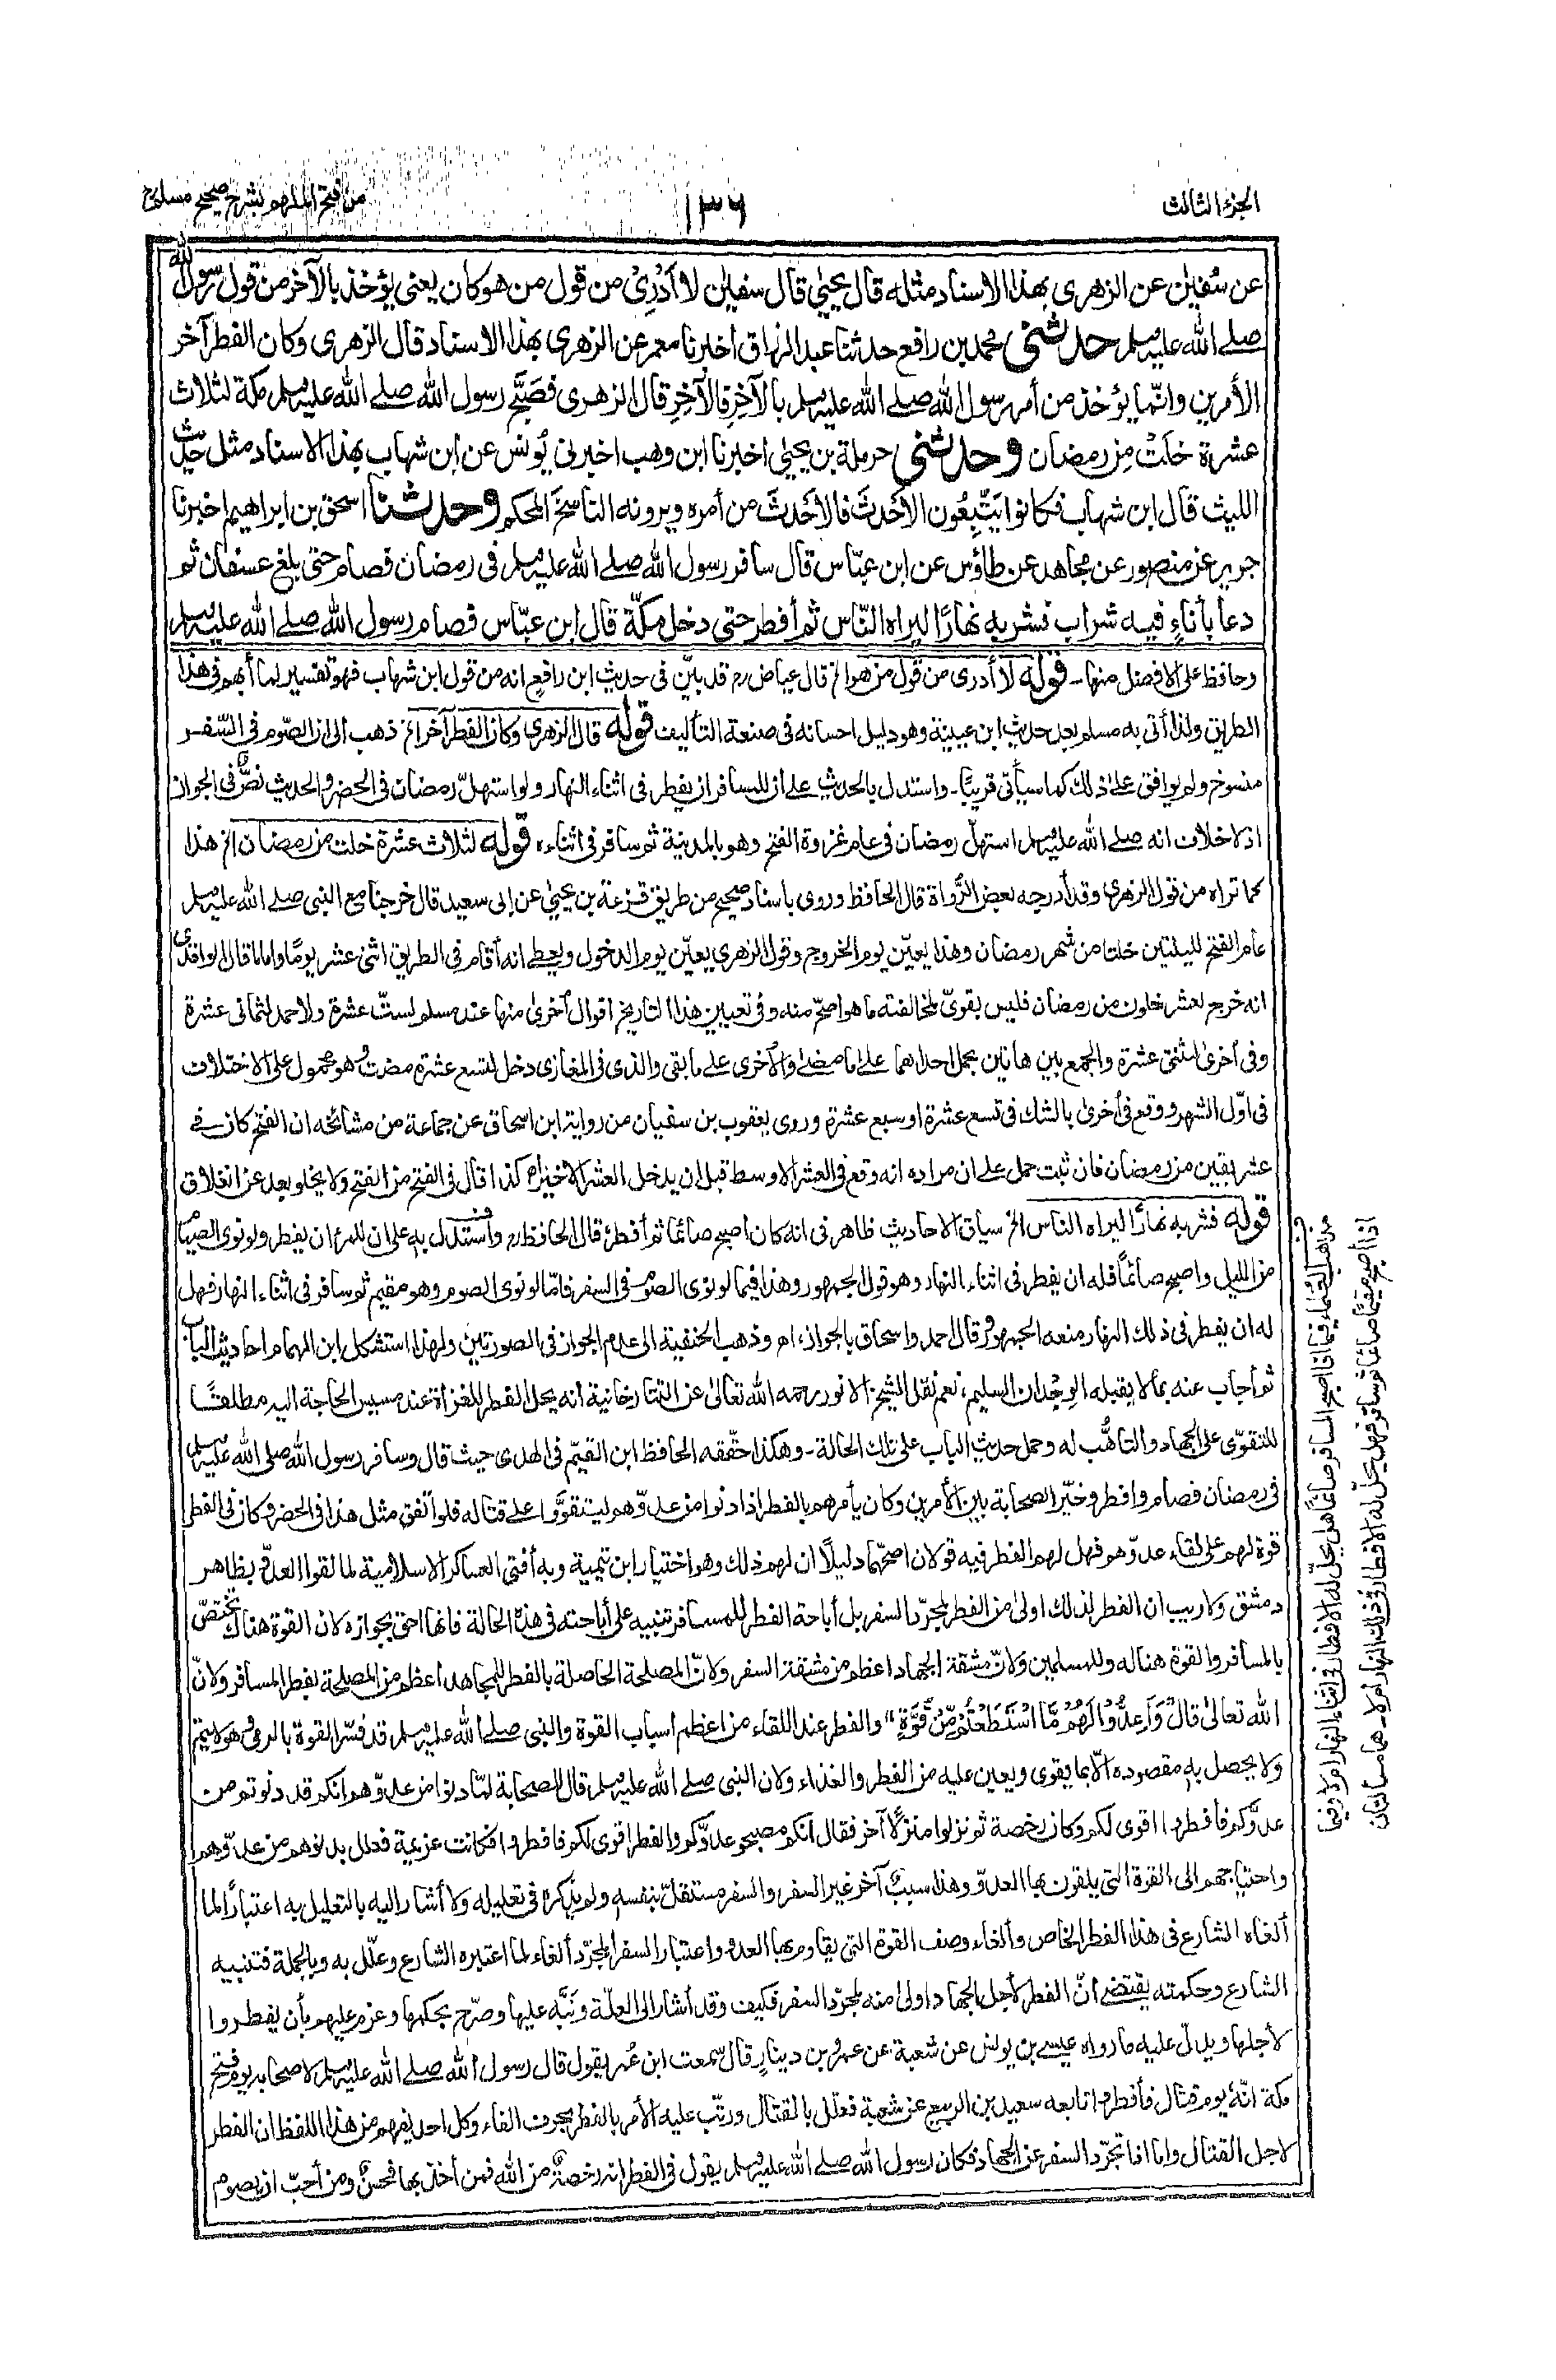 الجزء الثالث
١٣٦
من فتح الملهم بشرح صحيح مسلم
عن سُفيٰن عن الزهرى بهذا الاسناد مثله قال يحيىٰ قال سفيٰن لا أدْرِىْ من قول من هو وكان يعنى يؤخذ بالآخر من قول رسول الله
صلے الله عليه وسلم حدثنى محمد بن رافع حدثنا عبد الرزاق اخبرنا معمر عن الزهرى بهذا الاسناد قال الزهرى وكان الفطر آخر
الأمرين وانّما يؤخذ من أمر رسول الله صلے الله عليه وسلم بالآخِرِ فالآخِرِ قال الزهرى فصَبَّحَ رسول الله صلے الله عليه وسلم مكة لثلاث
عشرة خلَتْ من رمضان وحدثنى حرملة بن يحيىٰ اخبرنا ابن وهب اخبرنى يُونس عن ابن شهاب بهذا الاسناد مثل حديث
الليث قال ابن شهاب فكانوا يَتّبِعُون الأحْدثَ فالأحْدثَ من أمره ويرونه الناسخَ المحكم وحدثنا اسحق بن ابراهيم اخبرنا
جرير عن منصور عن مجاهد عن طاؤس عن ابن عبّاس قال سافر رسول الله صلے الله عليه وسلم فى رمضان فصام حتى بلغ عسفان ثم
دعا بأناءٍ فيه شراب فشربه نهارًا ليراه النّاس ثم أفطر حتى دخل مكّة قال ابن عبّاس فصام رسول الله صلے الله عليه وسلم
وحافظ على الافضل منها۔ قوله لا أدرى من قول من هو الخ قال عياض رح قد بيّن فى حديث ابن رافع انه من قول ابن شهاب فهو تفسير لما أبهم فى هذا
الطريق ولذا أتى به مسلم بعد حديث ابن عيينة وهو دليل احسانه فى صنعة التأليف قوله قال الزهرى وكان الفطر آخر الخ ذهب الى ان الصّوم فى السّفر
منسوخ ولم يوافق علىٰ ذلك كما سيأتى قريبًا۔ واستدل بالحديث علے ان للمسافر ان يفطر فى اثناء النهار ولو استهلّ رمضان فى الحضر والحديث نصٌّ فى الجواز
اذ لا خلاف انه صلے الله عليه وسلم استهلّ رمضان فى عام غزوة الفتح وهو بالمدينة ثم سافر فى اثناءه قوله لثلاث عشرة خلت من رمضان الخ هذا
كما تراه من قول الزهرى وقد أدرجه بعض الرُّواة قال الحافظ وروى باسناد صحيح من طريق قزعة بن يحيىٰ عن ابى سعيد قال خرجنا مع النبى صلے الله عليه وسلم
عام الفتح لليلتين خلتا من شهر رمضان وهذا يعيّن يوم الخروج وقول الزهرى يعيّن يوم الدخول ويعطى انه أقام فى الطريق اثنى عشر يومًا واما ما قال الواقدى
انه خرج لعشر خلون من رمضان فليس بقوىّ لمخالفته ما هو اصحّ منه وفى تعيين هذا التاريخ اقوال أخرىٰ منها عند مسلم لستّ عشرة ولاحمد لثمانى عشرة
وفى أخرىٰ لثنتى عشرة والجمع بين هاتين بحمل احداهما علىٰ ما مضىٰ والأخرى علے ما بقى والذى فى المغازى دخل لتسع عشرة مضت وهو محمول على الاختلاف
فى اوّل الشهر ووقع فى أخرىٰ بالشك فى تسع عشرة او سبع عشرة وروى يعقوب بن سفيان من رواية ابن اسحاق عن جماعة من مشائخه ان الفتح كان فے
عشر بقين من رمضان فان ثبت حمل على ان مراده انه وقع فى العشر الاوسط قبل ان يدخل العشر الاخير اھ كذا قال فى الفتح من الفتح ولا يخلو بعد عن انغلاق
قوله فشربه نهارًا ليراه الناس الخ سياق الاحاديث ظاهر فى انه كان اصبح صائمًا ثم أفطر، قال الحافظ رح واستدل به على ان للمرء ان يفطر ولو نوى الصيام
من الليل واصبح صائمًا فله ان يفطر فى اثناء النهار وهو قول الجمهور وهذا فيما لو نوى الصوم فى السفر فامّا لو نوى الصوم وهو مقيم ثم سافر فى اثناء النهار فهل
له ان يفطر فى ذلك النهار منعه الجمهور وقال احمد واسحاق بالجواز، اھ وذهب الحنفية الى عدم الجواز فى الصورتين ولهذا استشكل ابن الهمام احاديث الباب
ثم أجاب عنه بما لا يقبله الوِجْدان السليم، نعم نقل الشيخ الانور رحمه الله تعالىٰ عن التتارخانية أنه يحل الفطر للغزاة عند مسيس الحاجة اليه مطلقًا
للتقوّى على الجهاد والتأهُّب له وحمل حديث الباب على تلك الحالة۔ وهكذا حقّقه الحافظ ابن القيّم فى الهدى حيث قال وسافر رسول الله صلى الله عليه وسلم
فى رمضان فصام وافطر وخيّر الصحابة بين الأمرين وكان يأمرهم بالفطر اذا دنوا من عدوّهم ليتقوَّوا علے قتاله فلو اتفق مثل هذا فى الحضر وكان فى الفطر
قوة لهم على لقاء عدوّهم فهل لهم الفطر فيه قولان اصحّهما دليلًا ان لهم ذلك وهو اختيار ابن تيمية وبه أفتى العساكر الاسلامية لما لقوا العدوّ بظاهر
دمشق ولا ريب ان الفطر لذلك اولىٰ من الفطر لمجرّد السفر بل أباحة الفطر للمسافر تنبيه على أباحته فى هذه الحالة فانها احق بجوازه لان القوة هناك تختصّ
بالمسافر والقوة هنا له وللمسلمين ولانّ مشقة الجهاد اعظم من مشقة السفر ولانّ المصلحة الحاصلة بالفطر للمجاهد أعظم من المصلحة بفطر المسافر ولانّ
الله تعالىٰ قال وَأَعِدُّوْا لَهُمْ مَّا اسْتَطَعْتُمْ مِّنْ قُوَّةٍ" والفطر عند اللقاء من اعظم اسباب القوة والنبى صلے الله عليه وسلم قد فسّر القوة بالرمى وهو لا يتمّ
ولا يحصل به مقصوده الّا بما يقوى ويعين عليه من الفطر والغذاء ولان النبى صلے الله عليه وسلم قال للصحابة لمّا دنوا من عدوّهم انكم قد دنوتم من
عدوّكم فأفطروا اقوى لكم وكان رخصة ثم نزلوا منزلًا آخر فقال انكم مصبحو عدوّكم والفطر اقوى لكم فافطروا فكانت عزيمة فعلل بدنوهم من عدوّهم
واحتياجهم الى القوة التى يلقون بها العدوّ وهذا سببٌ آخر غير السفر والسفر مستقلّ بنفسه ولم يذكره فى تعليله ولا أشار اليه بالتعليل به اعتبارًا لما
ألغاه الشارع فى هذا الفطر الخاص وألغاء وصف القوة التى يقاوم بها العدو واعتبار السفر المجرّد ألغاء لما اعتبره الشارع وعلّل به وبالجملة فتنبيه
الشارع وحكمته يقتضے انّ الفطر لأجل الجهاد اولىٰ منه لمجرّد السفر فكيف وقد أشار الى العلّة ونَبَّه عليها وصرّح بحكمها وعزم عليهم بأن يفطروا
لأجلها ويدلّ عليه ما رواه عيسے بن يونس عن شعبة عن عمرو بن دينارٍ قال سمعت ابن عُمر يقول قال رسول الله صلے الله عليه وسلم لاصحابه يوم فتح
مكة انّهٗ يوم قتال فأفطروا تابعه سعيد بن الربيع عن شعبة فعلّل بالقتال ورتّب عليه الأمر بالفطر بحرف الفاء وكل احد يفهم من هذا اللفظ ان الفطر
لاجل القتال واما اذا تجرّد السفر عن الجهاد فكان رسول الله صلے الله عليه وسلم يقول فى الفطر انه رخصةٌ من الله فمن أخذ بها فحسنٌ ومن أحبّ ان يصوم
مذاهب العلماء فيما اذا اصبح المسافر صائمًا هل يحلّ له الافطار فى اثناء النهار ام لا وفيما
اذا أصبح مقيمًا صائمًا ثم سافر فهل يحلّ له الافطار فى ذلك النهار ام لا۔ هما مسألتان